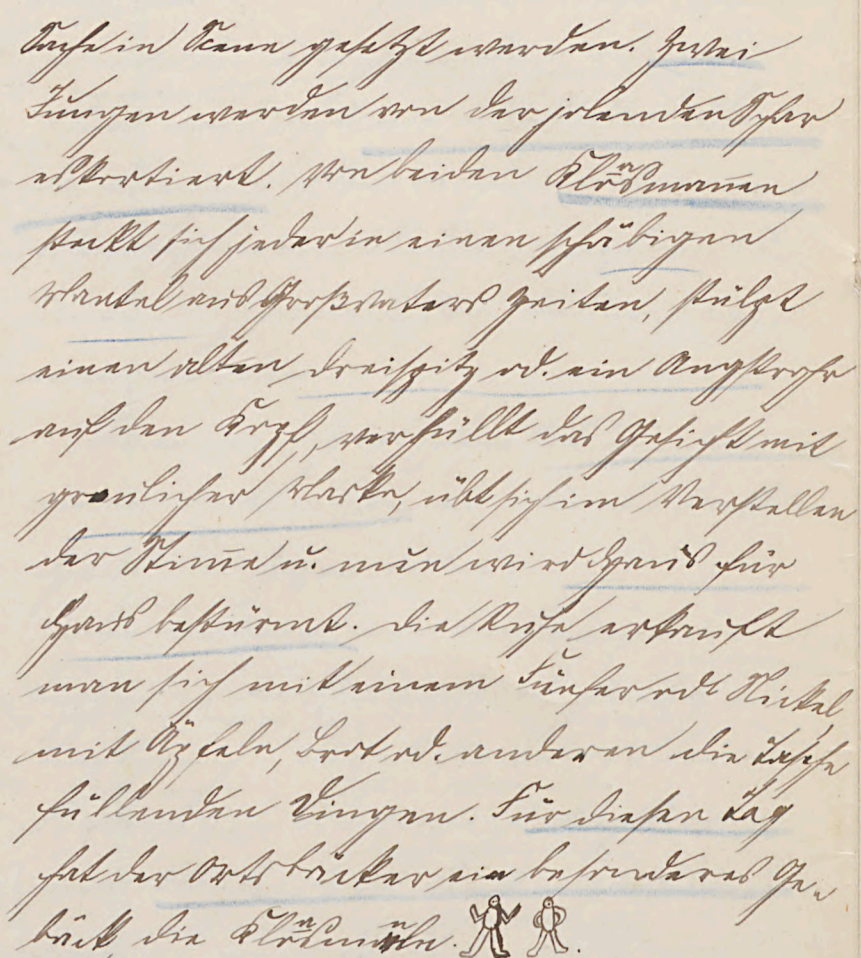 Sache in Scene gesetzt werden. Zwei
Jungen werden von der johlenden Schar
eskortiert. Von beiden Klosmannen
steckt sich jeder in einen schäbigen
Mantel aus Großvaters Zeiten, stülpt
einen alten Dreispitz od. ein Angstrohr
auf den Kopf, verhüllt das Gesicht mit
greulicher Maske, übt sich im Verstellen
der Stimme u. nun wird Haus für
Haus bestürmt. Die Ruhe erkauft
man sich mit einem Fünfer od. Nickel,
mit Äpfeln, Brot od. anderen die Tasche
füllenden Dingen. Für diesen Tag
hat der Ortsbäcker ein besonderes Ge-
bäck, die